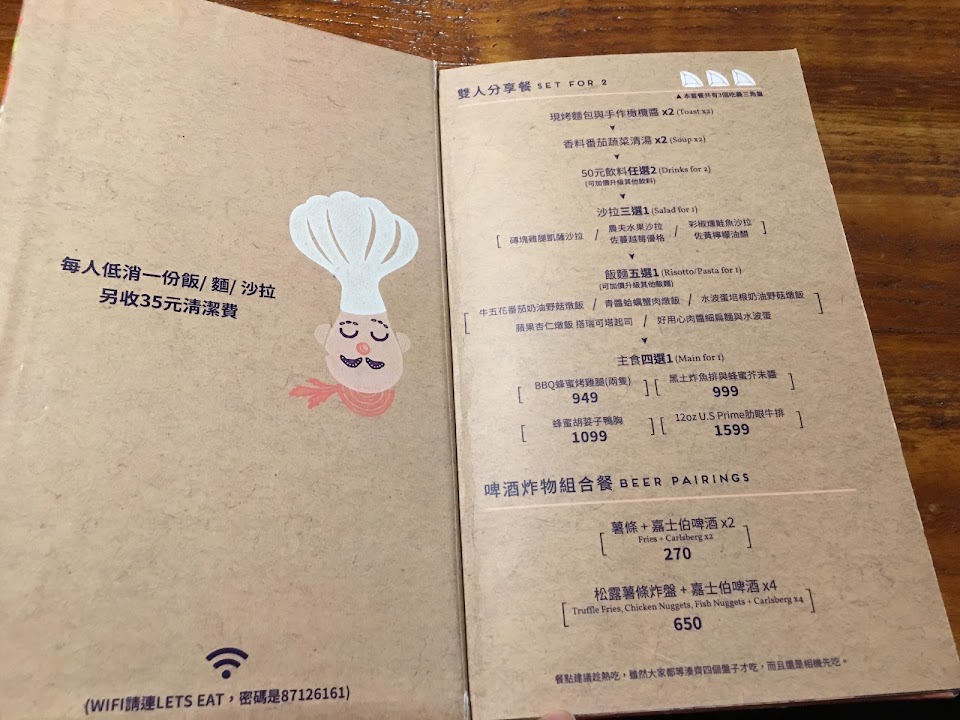 每人低消一份飯/ 麵/ 沙拉
另收35元清潔費
(WIFI請連LETS EAT，密碼是87126161)
雙人分享餐 SET FOR 2
▲ 本套餐共有3個吃義三角型
現烤麵包與手作橄欖醬 x2 (Toast x2)
香料番茄蔬菜清湯 x2 (Soup x2)
50元飲料任選2 (Drinks for 2)
(可加價升級其他飲料)
沙拉三選1 (Salad for 1)
[ 磚塊雞腿凱薩沙拉 / 農夫水果沙拉 佐蔓越莓優格 / 彩椒燻鮭魚沙拉 佐黃檸檬油醋 ]
飯麵五選1 (Risotto/Pasta for 1)
(可加價升級其他飯麵)
[ 牛五花番茄奶油野菇燉飯 / 青醬蛤蠣蟹肉燉飯 / 水波蛋培根奶油野菇燉飯
蘋果杏仁燉飯 搭瑞可塔起司 / 好用心肉醬細扁麵與水波蛋 ]
主食四選1 (Main for 1)
[ BBQ蜂蜜烤雞腿(兩隻) 949 ] [ 黑土炸魚排與蜂蜜芥末醬 999 ]
[ 蜂蜜胡荽子鴨胸 1099 ] [ 12oz U.S Prime肋眼牛排 1599 ]
啤酒炸物組合餐 BEER PAIRINGS
薯條 + 嘉士伯啤酒 x2
Fries + Carlsberg x2
270
松露薯條炸盤 + 嘉士伯啤酒 x4
Truffle Fries, Chicken Nuggets, Fish Nuggets + Carlsberg x4
650
餐點建議趁熱吃，雖然大家都等湊齊四個盤子才吃，而且還是相機先吃。